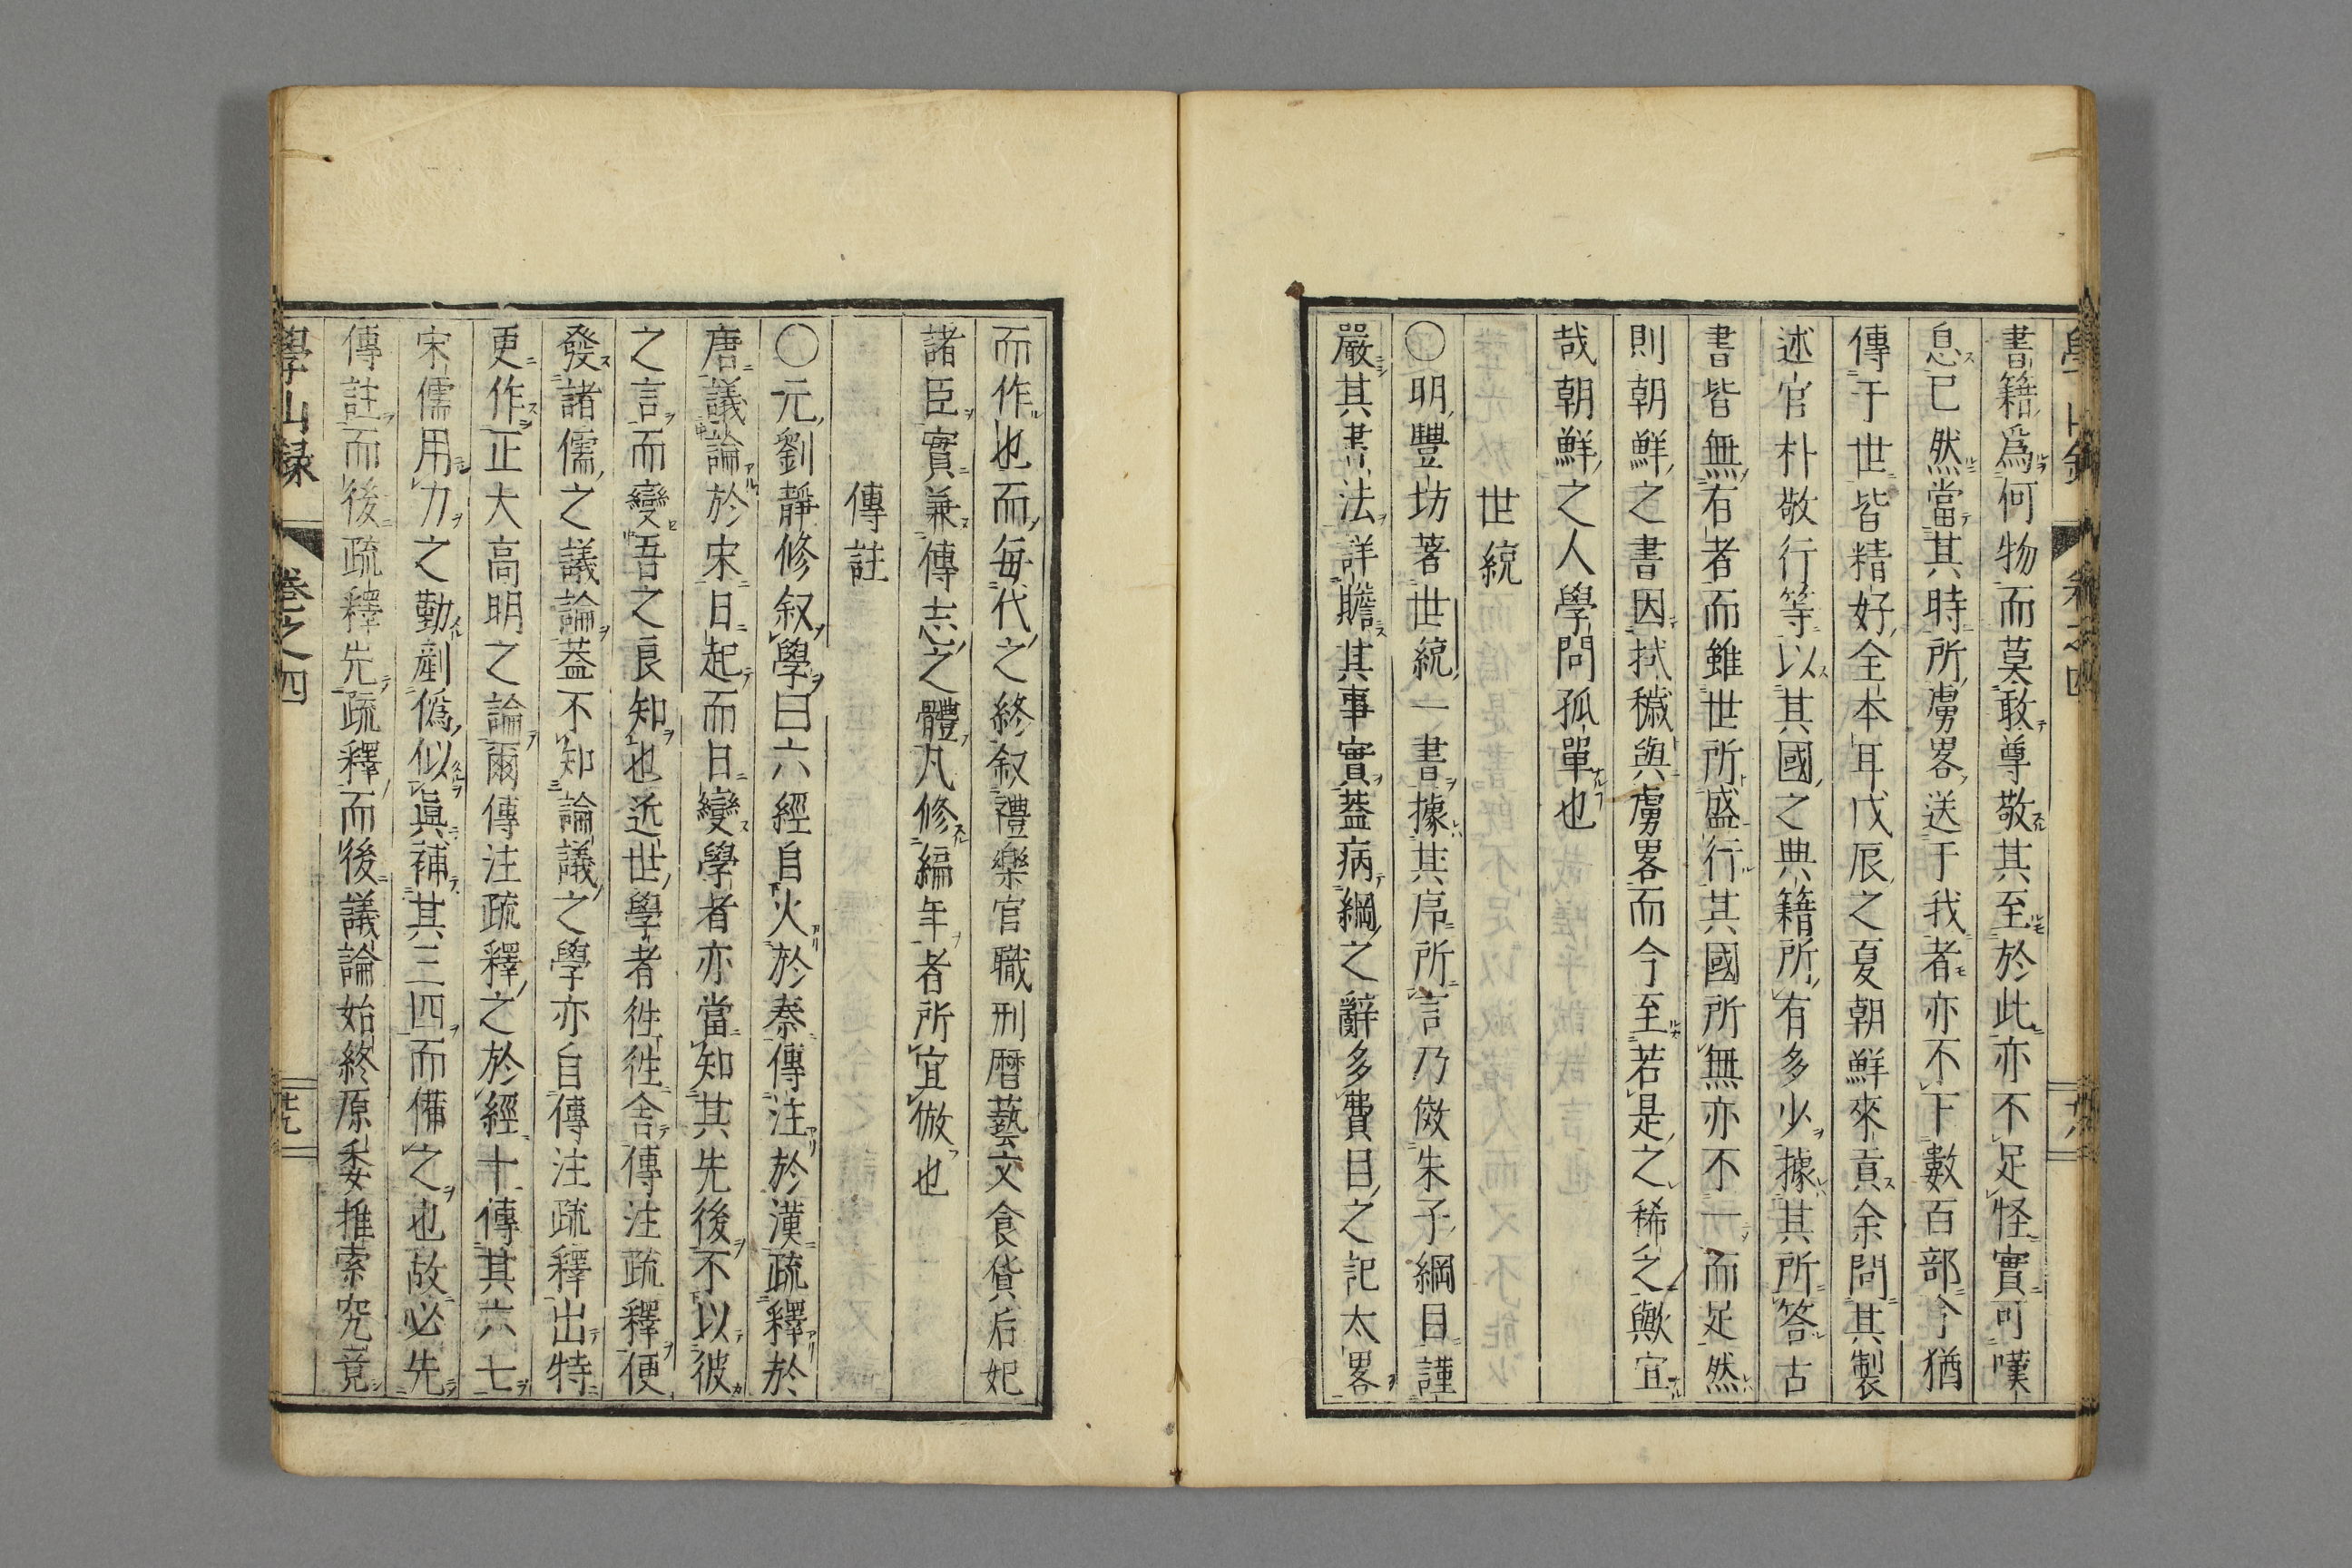 書籍爲何物而莫敢尊敬其至於此亦不足怪實可嘆
息已然當其時所虜畧送于我者亦不下數百部今猶
傳于世皆精好全本耳戊辰之夏朝鮮來貢余問其製
述官朴敬行等以其國之典籍所有多少據其所答古
書皆無有者而雖世所盛行其國所無亦不一而足然
則朝鮮之書因拭穢與虜畧而今至若是之稀乏歟宜
哉朝鮮之人學問孤單也
世統
〇明豐坊著世統一書據其序所言乃倣朱子綱目謹
嚴其書法詳贍其事實蓋病綱之辭多費目之記太畧
而作也而每代之終叙禮樂官職刑曆藝文食貨后妃
諸臣實兼傳志之體凡修編年者所宜倣也
傳註
〇元劉靜修叙學曰六經自火於秦傳注於漢疏釋於
唐議論於宋日起而日變學者亦當知其先後不以彼
之言而變吾之良知也近世學者往往舍傳注疏釋便
發諸儒之議論蓋不知論議之學亦自傳注疏釋出特
更作正大高明之論爾傳注疏釋之於經十傳其六七
宋儒用力之勤剷僞似眞補其三四而備之也故必先
傳註而後疏釋先疏釋而後議論始終原委推索究竟
學山録
卷之四